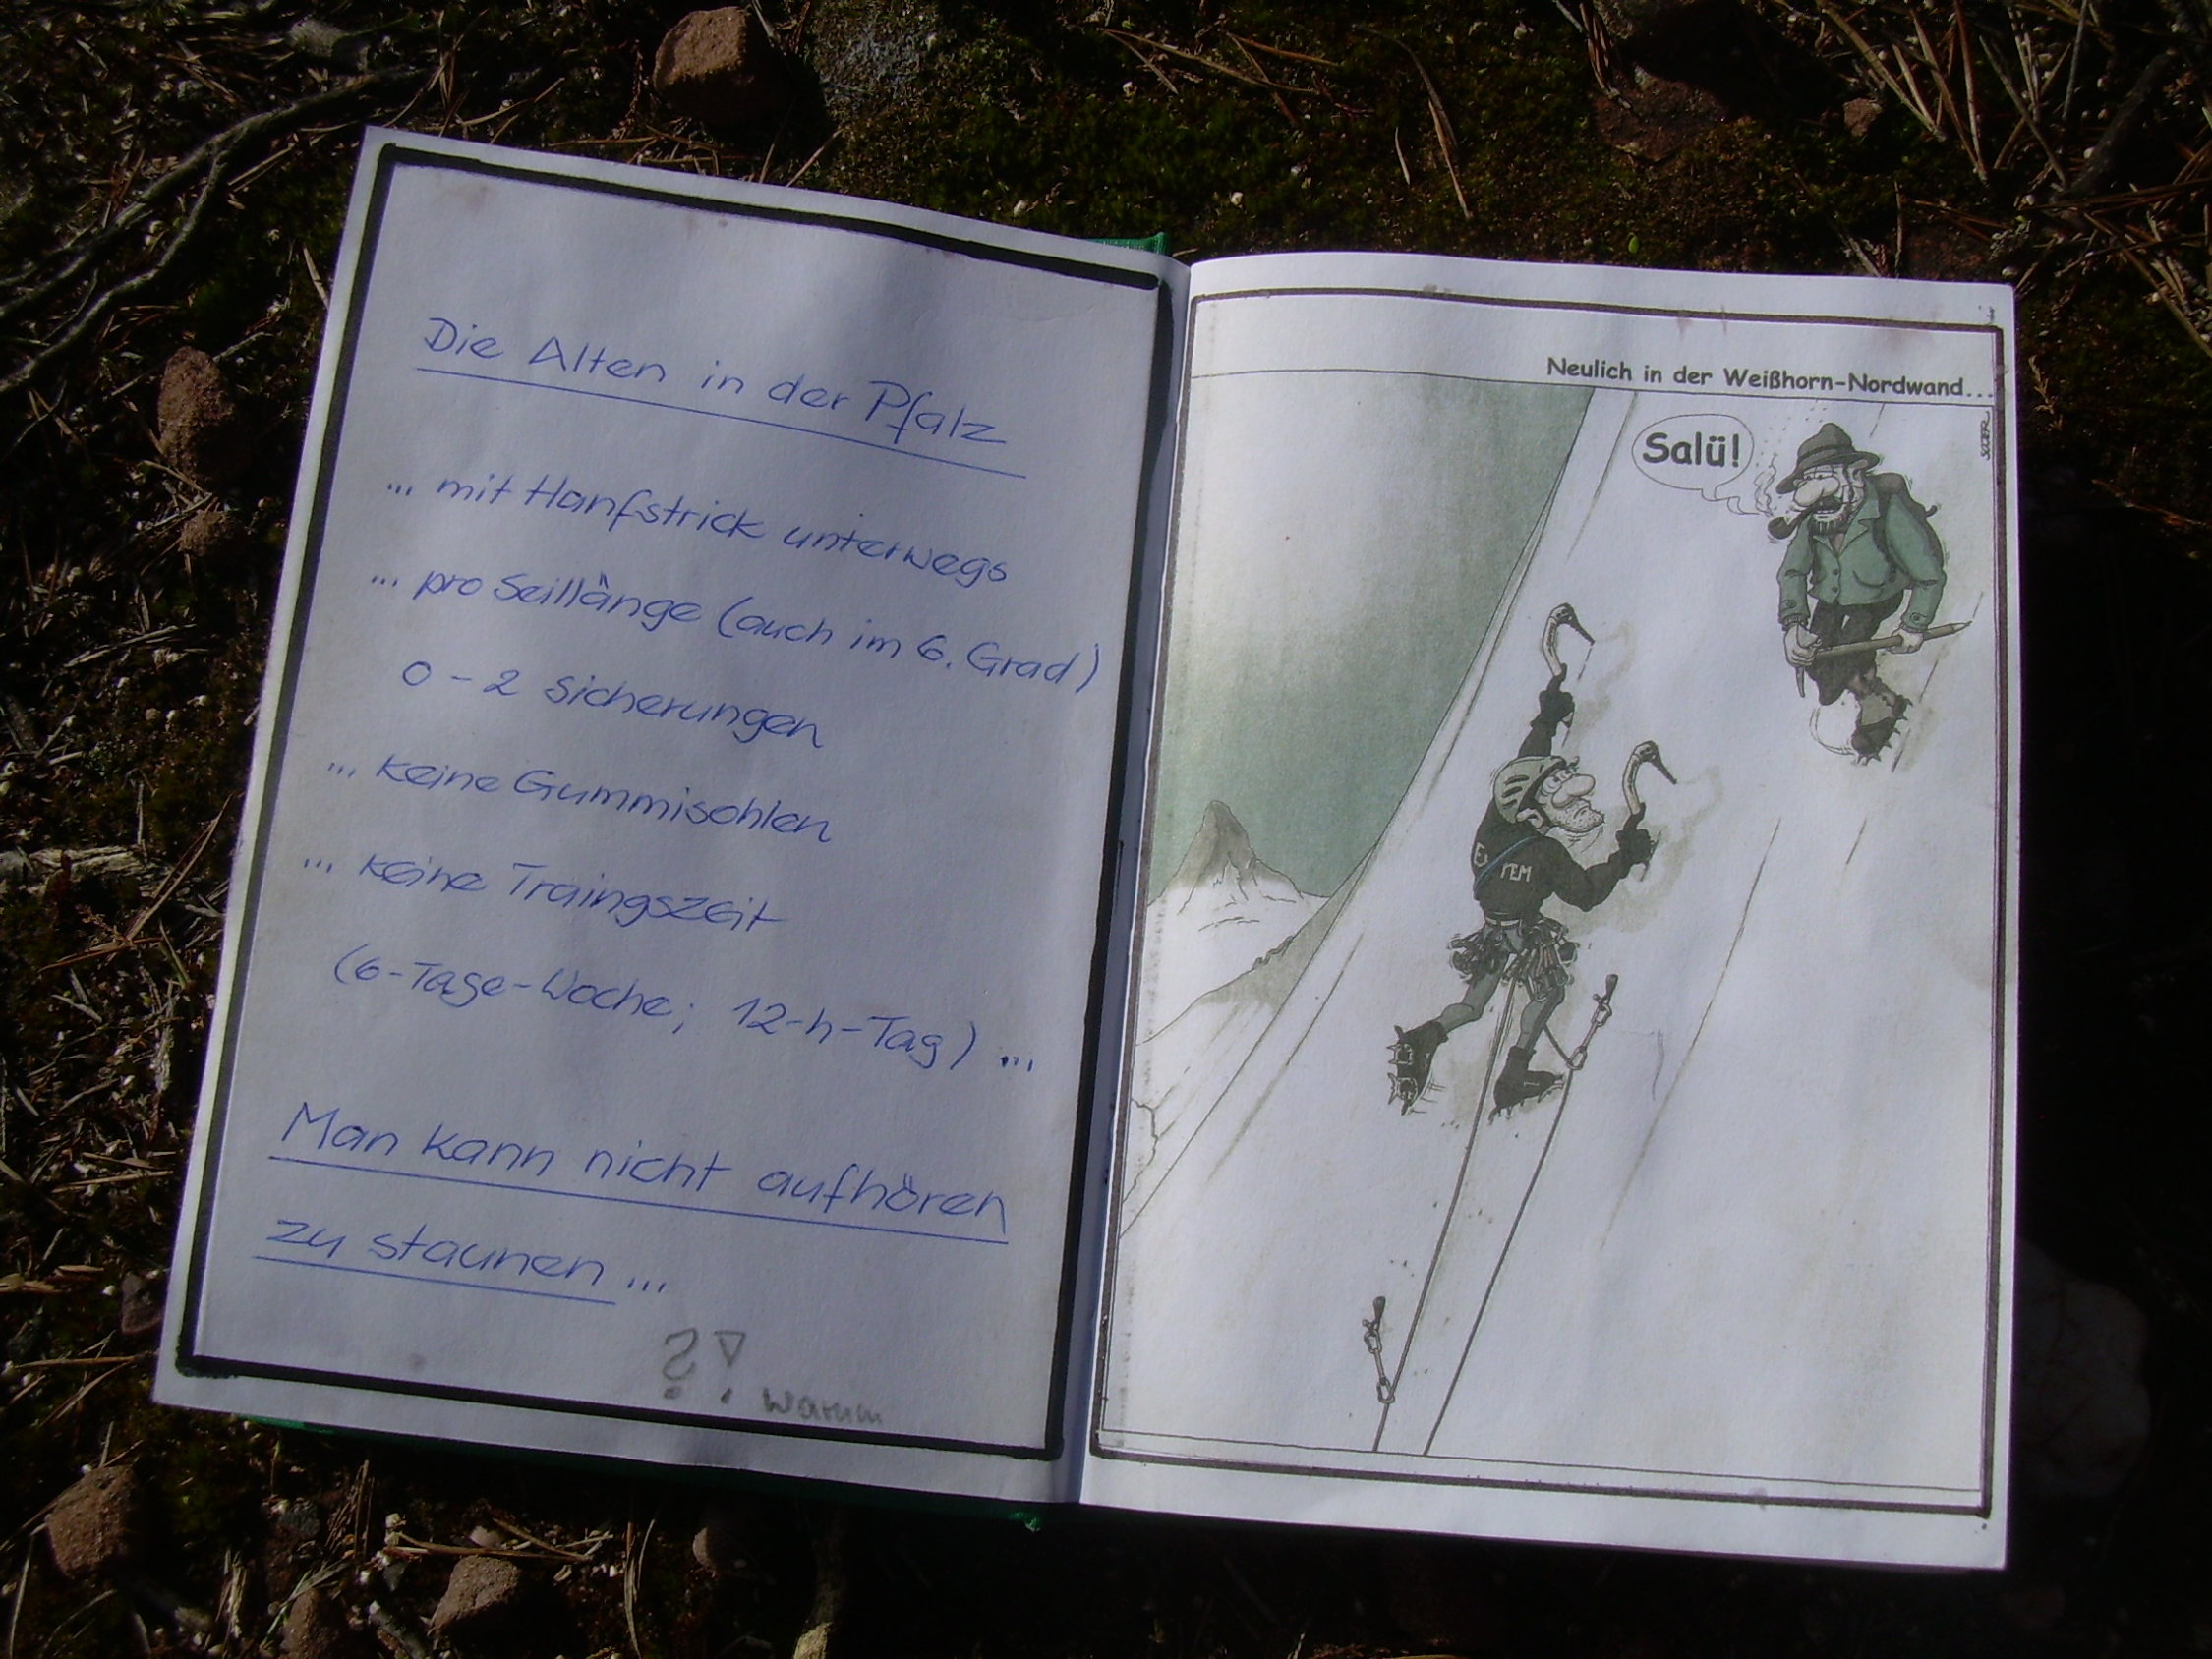 Die Alten in der Pfalz
... mit Hanfstrick unterwegs
... pro Seillänge (auch im 6. Grad)
0 - 2 Sicherungen
... keine Gummisohlen
... keine Traingszeit
(6-Tage-Woche; 12-h-Tag) ...
Man kann nicht aufhören
zu staunen ...
?! warum
Neulich in der Weißhorn-Nordwand...
Salü!